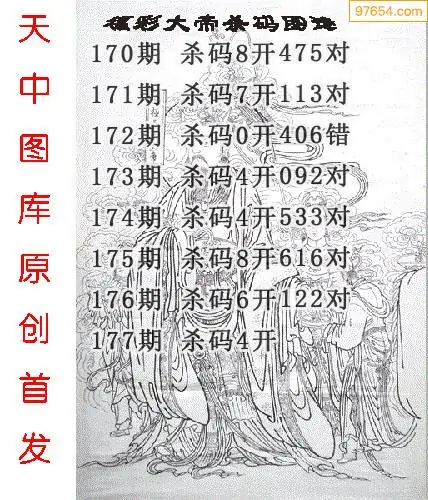 97654.com
福彩大帝杀码图谜
170期 杀码8开475对
171期 杀码7开113对
172期 杀码0开406错
173期 杀码4开092对
174期 杀码4开533对
175期 杀码8开616对
176期 杀码6开122对
177期 杀码4开
天中图库原创首发